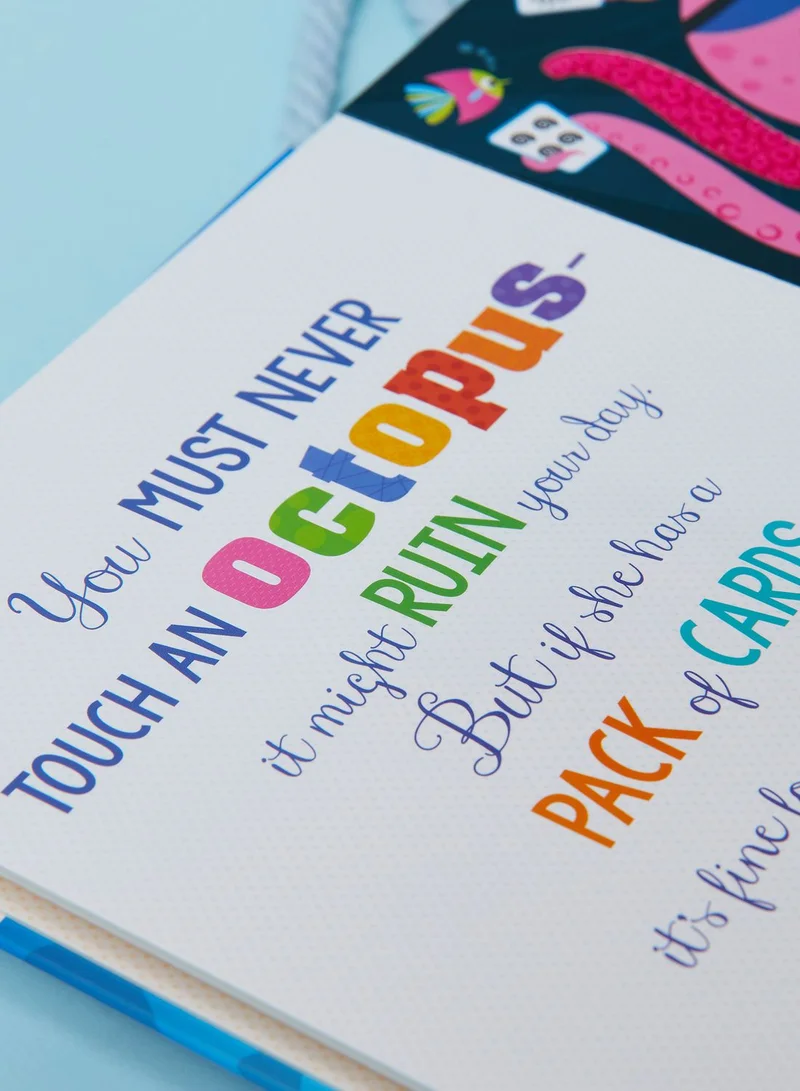 You MUST NEVER
TOUCH AN octopus-
it might RUIN your day.
But if she has a
PACK of CARDS
it's fine